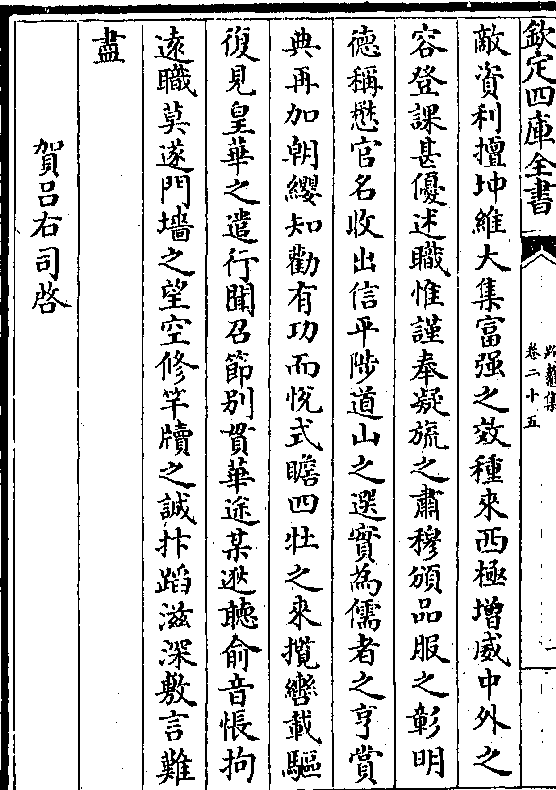 欽定四庫全書
跨鼇集
卷二十五
敵資利擅坤維大集富强之效種來西極增威中外之
容登課甚優述職惟謹奉凝旒之肅穆頒品服之彰明
德稱懋官名收出信平陟道山之選實為儒者之亨賞
典再加朝纓知勸有功而悅式瞻四牡之來攬轡載驅
復見皇華之遣行聞召節别貫華途某逖聽俞音悵拘
遠職莫遂門墻之望空修竿牘之誠抃蹈滋深敷言難
盡
賀吕右司啓